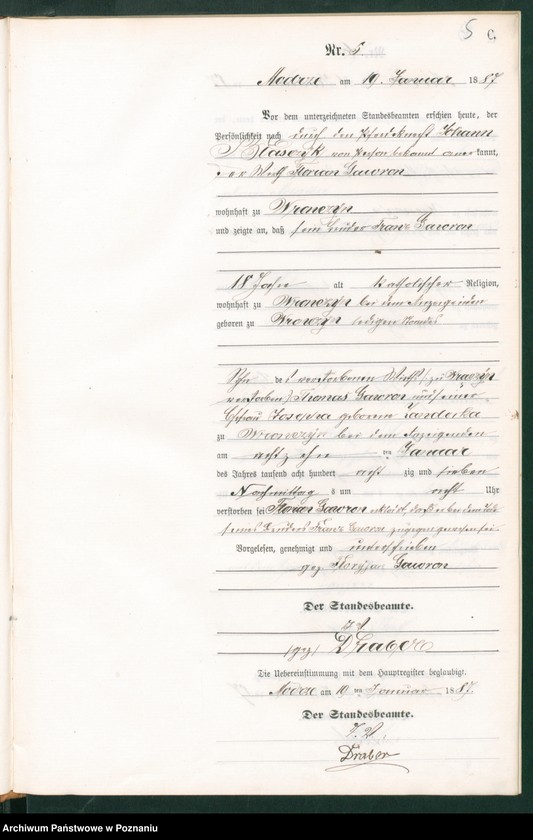 5 C.
Nr. 5
Modrze am 19. Januar 1887
Vor dem unterzeichneten Standesbeamten erschien heute, der
Persönlichkeit nach durch den Pferdeknecht Johann
Blaszyk von Person bekannt anerkannt,
der Wirth Florian Gawron
wohnhaft zu Wronczyn
und zeigte an, daß sein Bruder Franz Gawron
18 Jahre alt katholischer Religion,
wohnhaft zu Wronczyn bei dem Anzeigenden
geboren zu Wronczyn ledigen Standes
Sohn des verstorbenen Wirth (zu Wronczyn
verstorben) Thomas Gawron und seiner
Ehefrau Josepha geborene
zu Wronczyn bei dem Anzeigenden
am achtzehnten Januar
des Jahres tausend acht hundert achtzig und sieben
Nachmittags um acht Uhr
verstorben sei Florian Gawron erklärt, daß er bei dem Tode
seines Bruders Franz Gawron zugegen gewesen sei
Vorgelesen, genehmigt und unterschrieben
gez Floryjan Gawron
Der Standesbeamte.
I. V.
(gez) Draber
Die Uebereinstimmung mit dem Hauptregister beglaubigt.
Modrze am 19 ten Januar 1887.
Der Standesbeamte.
I. V.
Draber
Archiwum Państwowe w Poznaniu